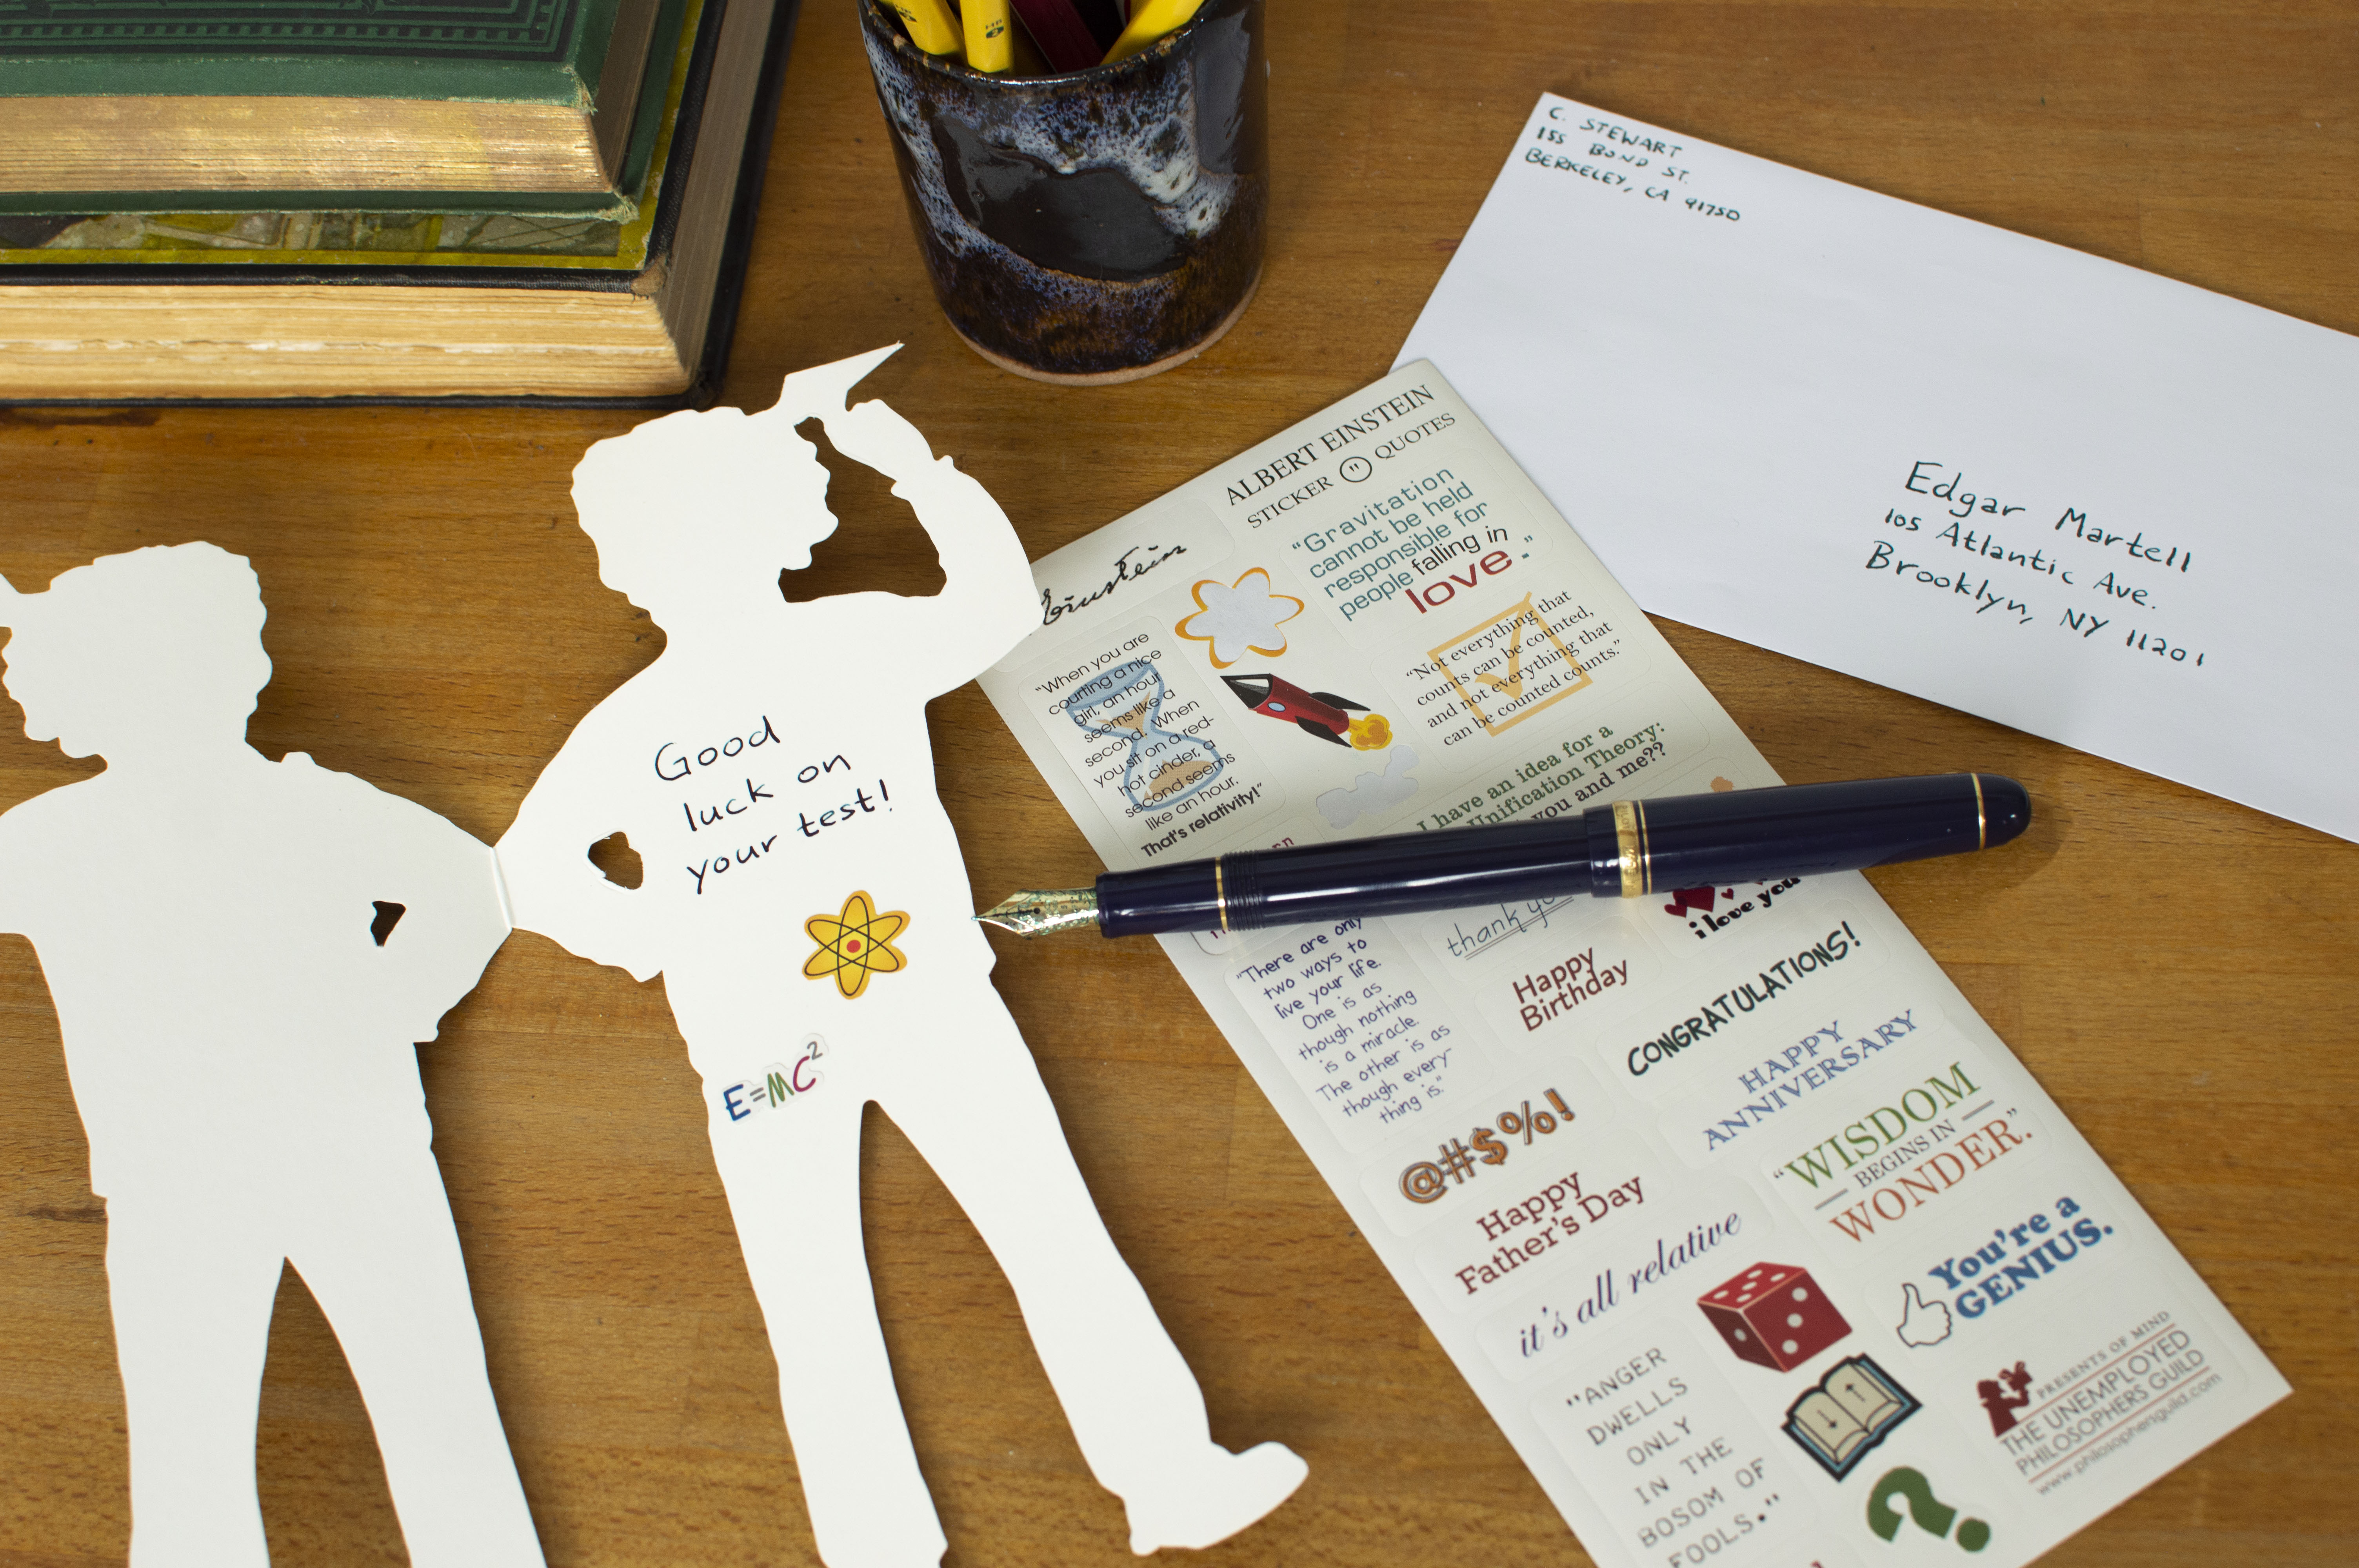 C. STEWART
155 BOND ST.
BERKELEY, CA 91750
Edgar Martell
105 Atlantic Ave.
Brooklyn, NY 11201
Good
luck on
your test!
E=MC²
ALBERT EINSTEIN
STICKER " QUOTES
Einstein
"Gravitation
cannot be held
responsible for
people falling in
love."
"When you are
courting a nice
girl, an hour
seems like a
second. When
you sit on a red-
hot cinder, a
second seems
like an hour.
That's relativity!"
"Not everything that
counts can be counted,
and not everything that
can be counted counts."
I have an idea for a
Unification Theory:
you and me??
thank you
i love you
"There are only
two ways to
live your life.
One is as
though nothing
is a miracle.
The other is as
though every-
thing is."
Happy
Birthday
CONGRATULATIONS!
HAPPY
ANNIVERSARY
@#$%!
Happy
Father's Day
"WISDOM
BEGINS IN
WONDER."
it's all relative
You're a
GENIUS.
"ANGER
DWELLS
ONLY
IN THE
BOSOM OF
FOOLS."
PRESENTS OF MIND
THE UNEMPLOYED
PHILOSOPHERS GUILD
www.philosophersguild.com
?